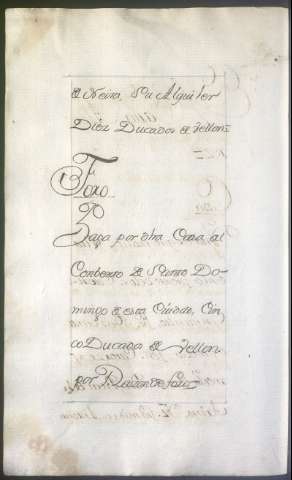 de Neira, Su Alquiler
Diez Ducados de Vellon
Foro
Paga por otra Casa al
Conbento de Santo Do-
mingo de esta Ciudad, Cin-
co Ducados de Vellon
por Razon de foro